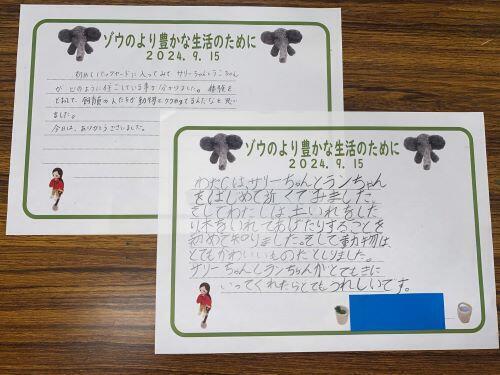 ゾウのより豊かな生活のために
2024.9.15
初めてバックヤードに入ってみて サリーちゃんとランちゃん
が どのように行こしている事が分かりました。
飼育の人たちが動物 んだなと思い
ました。
今日は、ありがとうございました。
ゾウのより豊かな生活のために
2024.9.15
わたしは、サリーちゃんとランちゃん
をはじめて近くでみました。
そしてわたしは土いれをした
り木をいれてあげたりすることを
初めて知りました。そして動物は、
とてもかわいいものだとしりました。
サリーちゃんとランちゃんがとてもきに
いってくれたらとてもうれしいです。